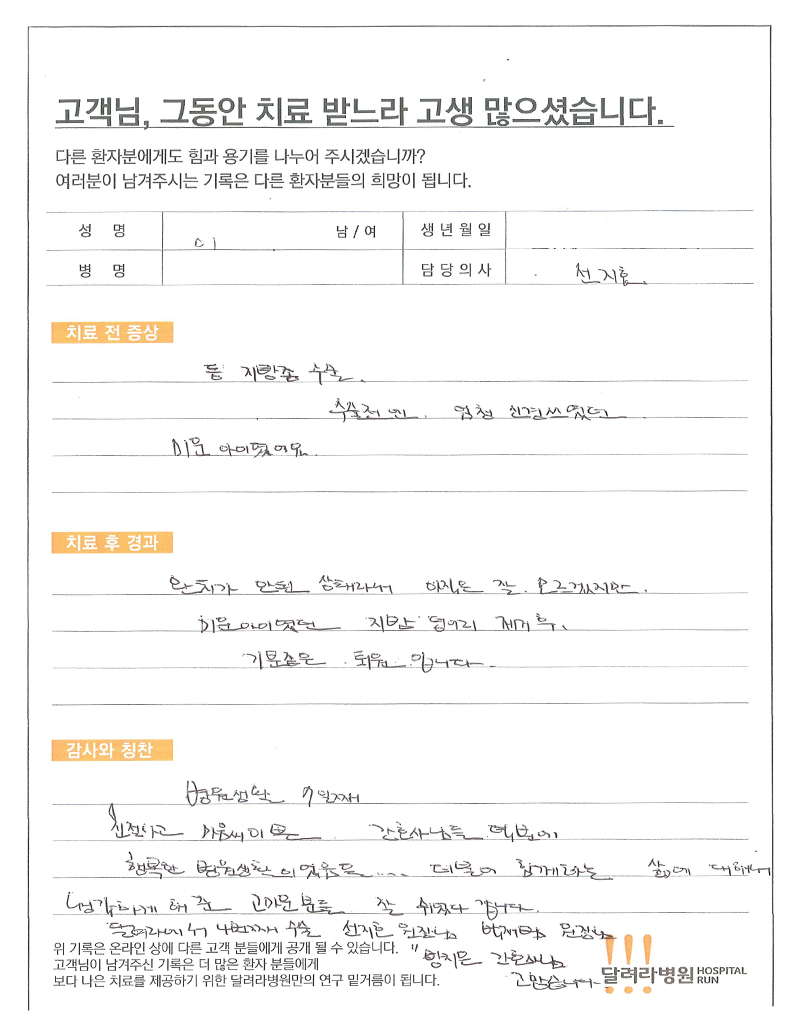 고객님, 그동안 치료 받느라 고생 많으셨습니다.
다른 환자분에게도 힘과 용기를 나누어 주시겠습니까?
여러분이 남겨주시는 기록은 다른 환자분들의 희망이 됩니다.
성 명 이 남 / 여 생년월일
병 명 담당의사 선지호
치료 전 증상
등 지방종 수술.
수술전엔. 엄청 신경쓰였던
미운 아이였어요.
치료 후 경과
완치가 안된 상태라서 아직은 잘 모르겠지만.
미운아이였던 지방 덩어리 제거 후,
기분좋은 퇴원 입니다.
감사와 칭찬
병원생활 7일째
친절하고 마음씨 이쁜 간호사님들 덕분에
행복한 병원생활이였음을 .... 더불어 함께하는 삶에 대해서
생각하게 해 준 고마운 분들 잘 쉬었다 갑니다.
달려라에서 4번째 수술 선지호 원장님 원장님
위 기록은 온라인 상에 다른 고객 분들에게 공개 될 수 있습니다. " 간호사님
고객님이 남겨주신 기록은 더 많은 환자 분들에게 고맙습니다
보다 나은 치료를 제공하기 위한 달려라병원만의 연구 밑거름이 됩니다.
달려라병원 HOSPITAL RUN